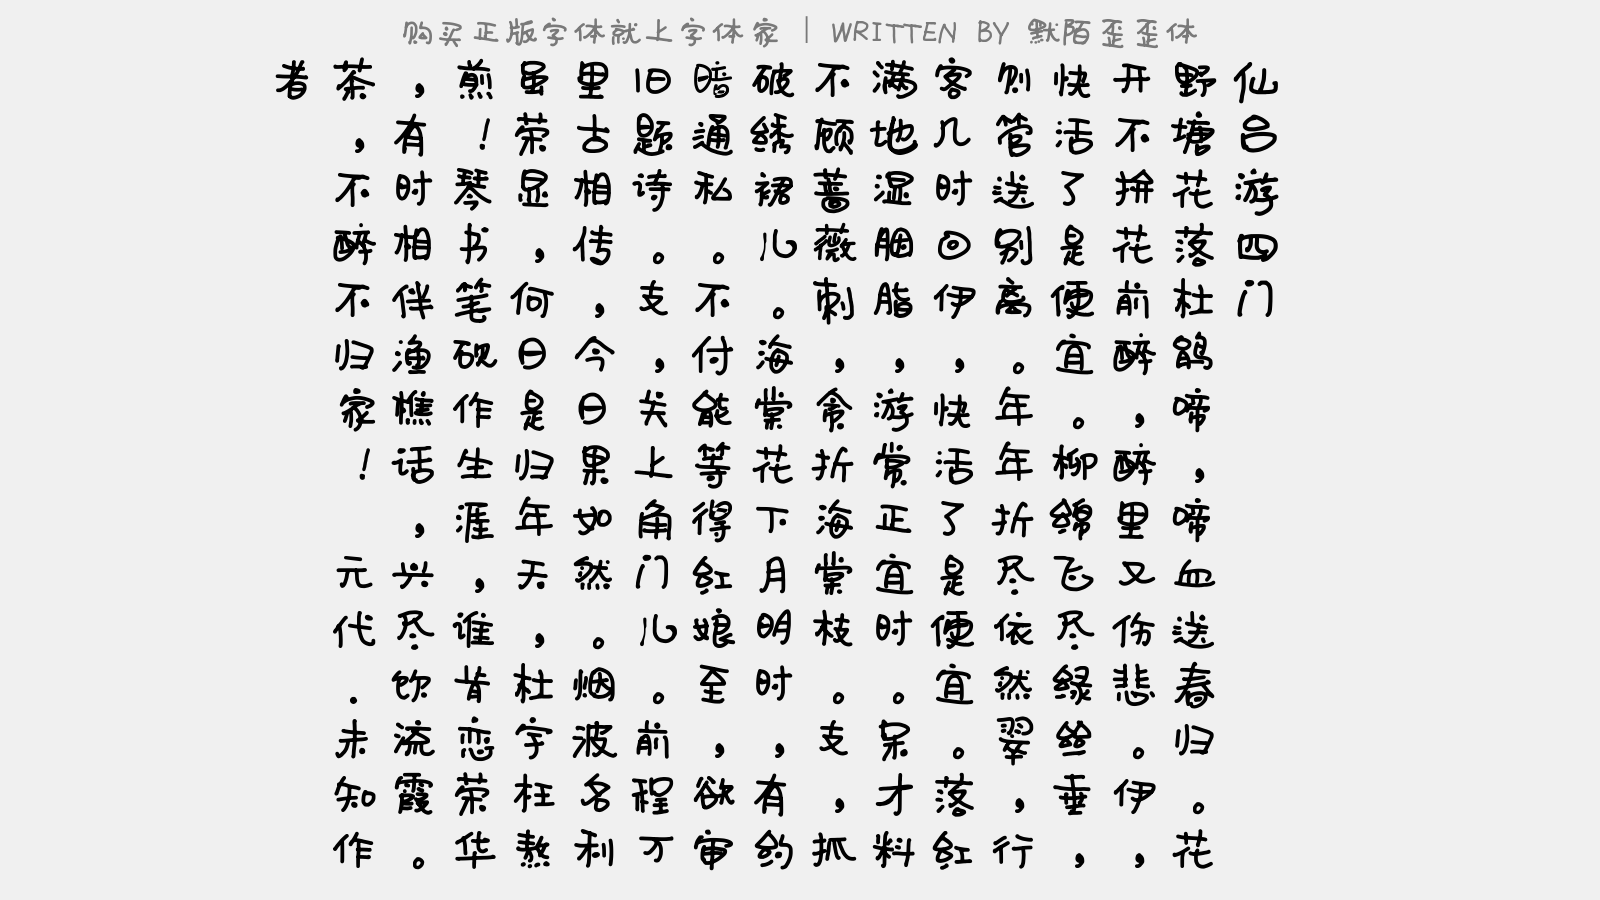 购买正版字体就上字体家 | WRITTEN BY 默陌歪歪体
仙吕游四门
野塘花落杜鹃啼，啼血送春归。花
开不拚花前醉，醉里又伤悲。伊，
快活了是便宜。柳绵飞尽绿丝垂，
则管送别离。年年折尽依然翠，行
客几时回伊，快活了是便宜。落红
满地湿胭脂，游赏正宜时。呆才料
不顾蔷薇刺，贪折海棠枝。支，抓
破绣裙儿。海棠花下月明时，有约
暗通私。不付能等得红娘至，欲审
旧题诗。支，关上角门儿。前程万
里古相传，今日果如然。烟波名利
虽荣显，何日是归年天，杜宇枉熬
煎！琴书笔砚作生涯，谁肯恋荣华
，有时相伴渔樵话，兴尽饮流霞。
茶，不醉不归家！ 元代.未知作
者